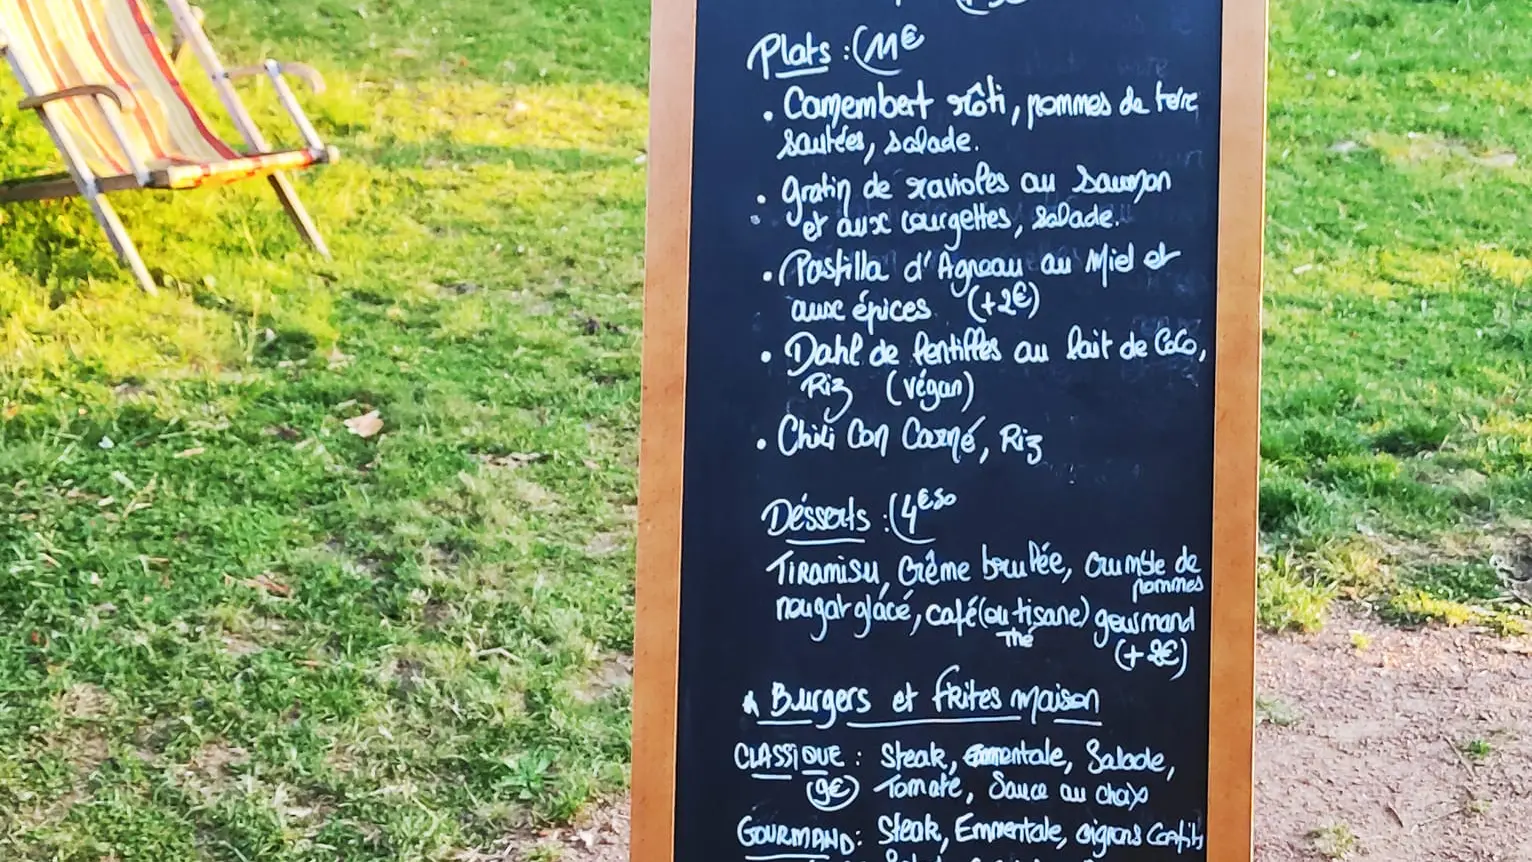 Plats : 11€
• Camembert rôti, pommes de terre
sautées, salade.
• Gratin de ravioles au saumon
et aux courgettes, salade.
• Pastilla d'Agneau au Miel et
aux épices (+2€)
• Dahl de lentilles au lait de Coco,
Riz (végan)
• Chili Con Carné, Riz
Désserts : 4€50
Tiramisu, Crème brulée, crumble de
pommes
nougat glacé, café (ou tisane) gourmand
Thé
(+2€)
Burgers et frites maison
CLASSIQUE : Steak, Emmentale, Salade,
9€ Tomate, Sauce au choix
GOURMAND : Steak, Emmentale, oignons confits